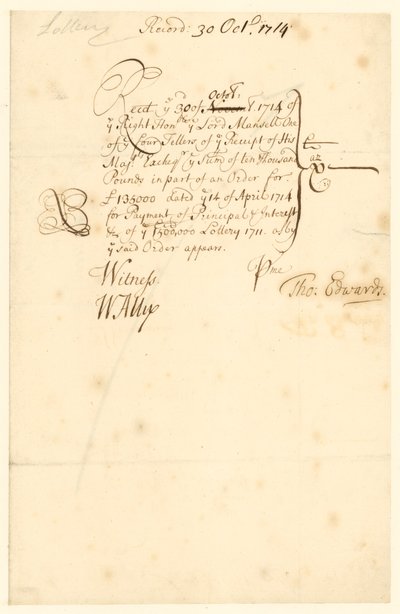 Lottery
Record: 30 Octo. 1714
Octobr.
Recd ye 30 of Novembr. 1714 of
ye Right Honble ye Lord Mansell One
of ye four Tellers of ye Receipt of His
Majts Excheqr ye Sum of ten Thousand
Pounds in part of an Order for
£135000 dated ye 14 of April 1714
for Payment of Principal & Interest
&c of ye 1500,000 Lottery 1711. as by
ye said Order appears.
Witness.
W Ally
Pme
Tho: Edwards.